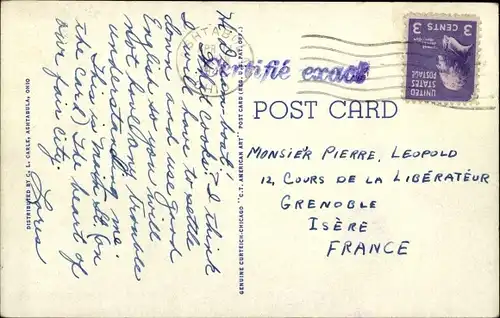 Ha, I "am boat!"
Good cooks. I think
I will have to settle
down and use good
English so you will
not have any trouble
understanding me.
This is main St. (on
the card) the heart of
our fair city.
Love
DISTRIBUTED BY C. L. CARLE, ASHTABULA, OHIO
GENUINE CURTEICH-CHICAGO "C.T. AMERICAN ART" POST CARD (REG. U.S. PAT. OFF.)
ASHTABULA
OHIO
Identifié exact
UNITED
STATES
POSTAGE
3 CENTS 3
POST CARD
MONSIER PIERRE, LEOPOLD
12, COURS DE LA LIBÉRATEUR
GRENOBLE
ISÈRE
FRANCE